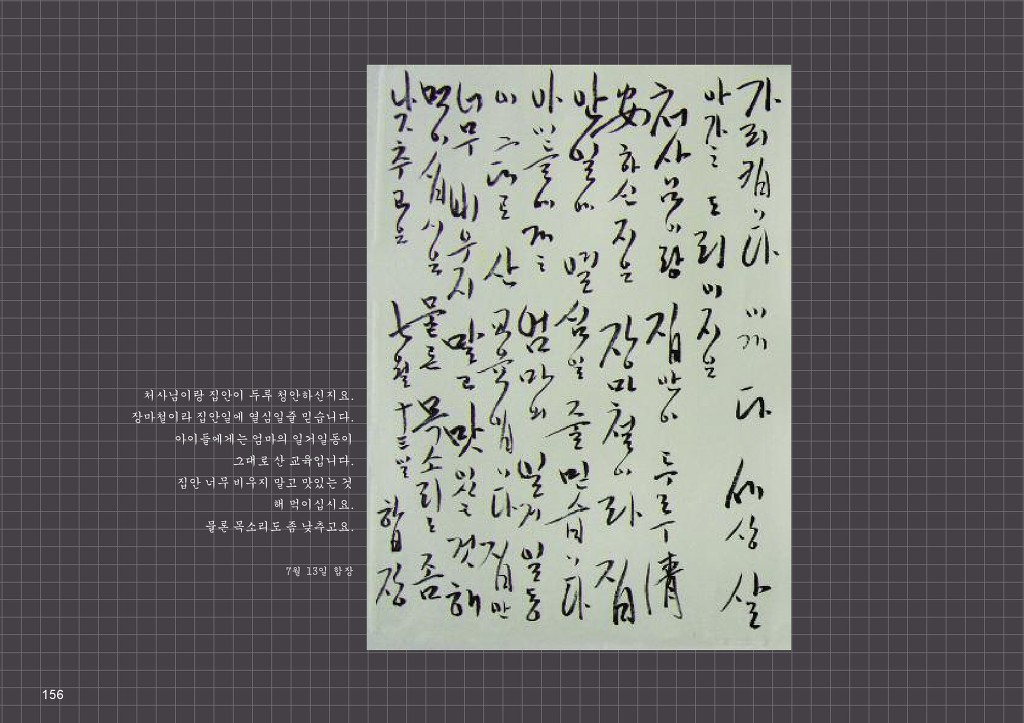 처사님이랑 집안이 두루 청안하신지요.
장마철이라 집안일에 열심일줄 믿습니다.
아이들에게는 엄마의 일거일동이
그대로 산 교육입니다.
집안 너무 비우지 말고 맛있는 것
해 먹이십시요.
물론 목소리도 좀 낮추고요.
7월 13일 합장
가리킵니다 이게 다 세상 살
아가는 도리이지요
처사님이랑 집안이 두루 淸
安하신지요 장마철이라 집
안일에 열심일 줄 믿습니다
아이들에게는 엄마의 일거일동
이 그대로 산 교육입니다 집안
너무 비우지 말고 맛있는 것 해
먹이십시요 물론 목소리도 좀
낮추고요 七월 十三일 합장
156